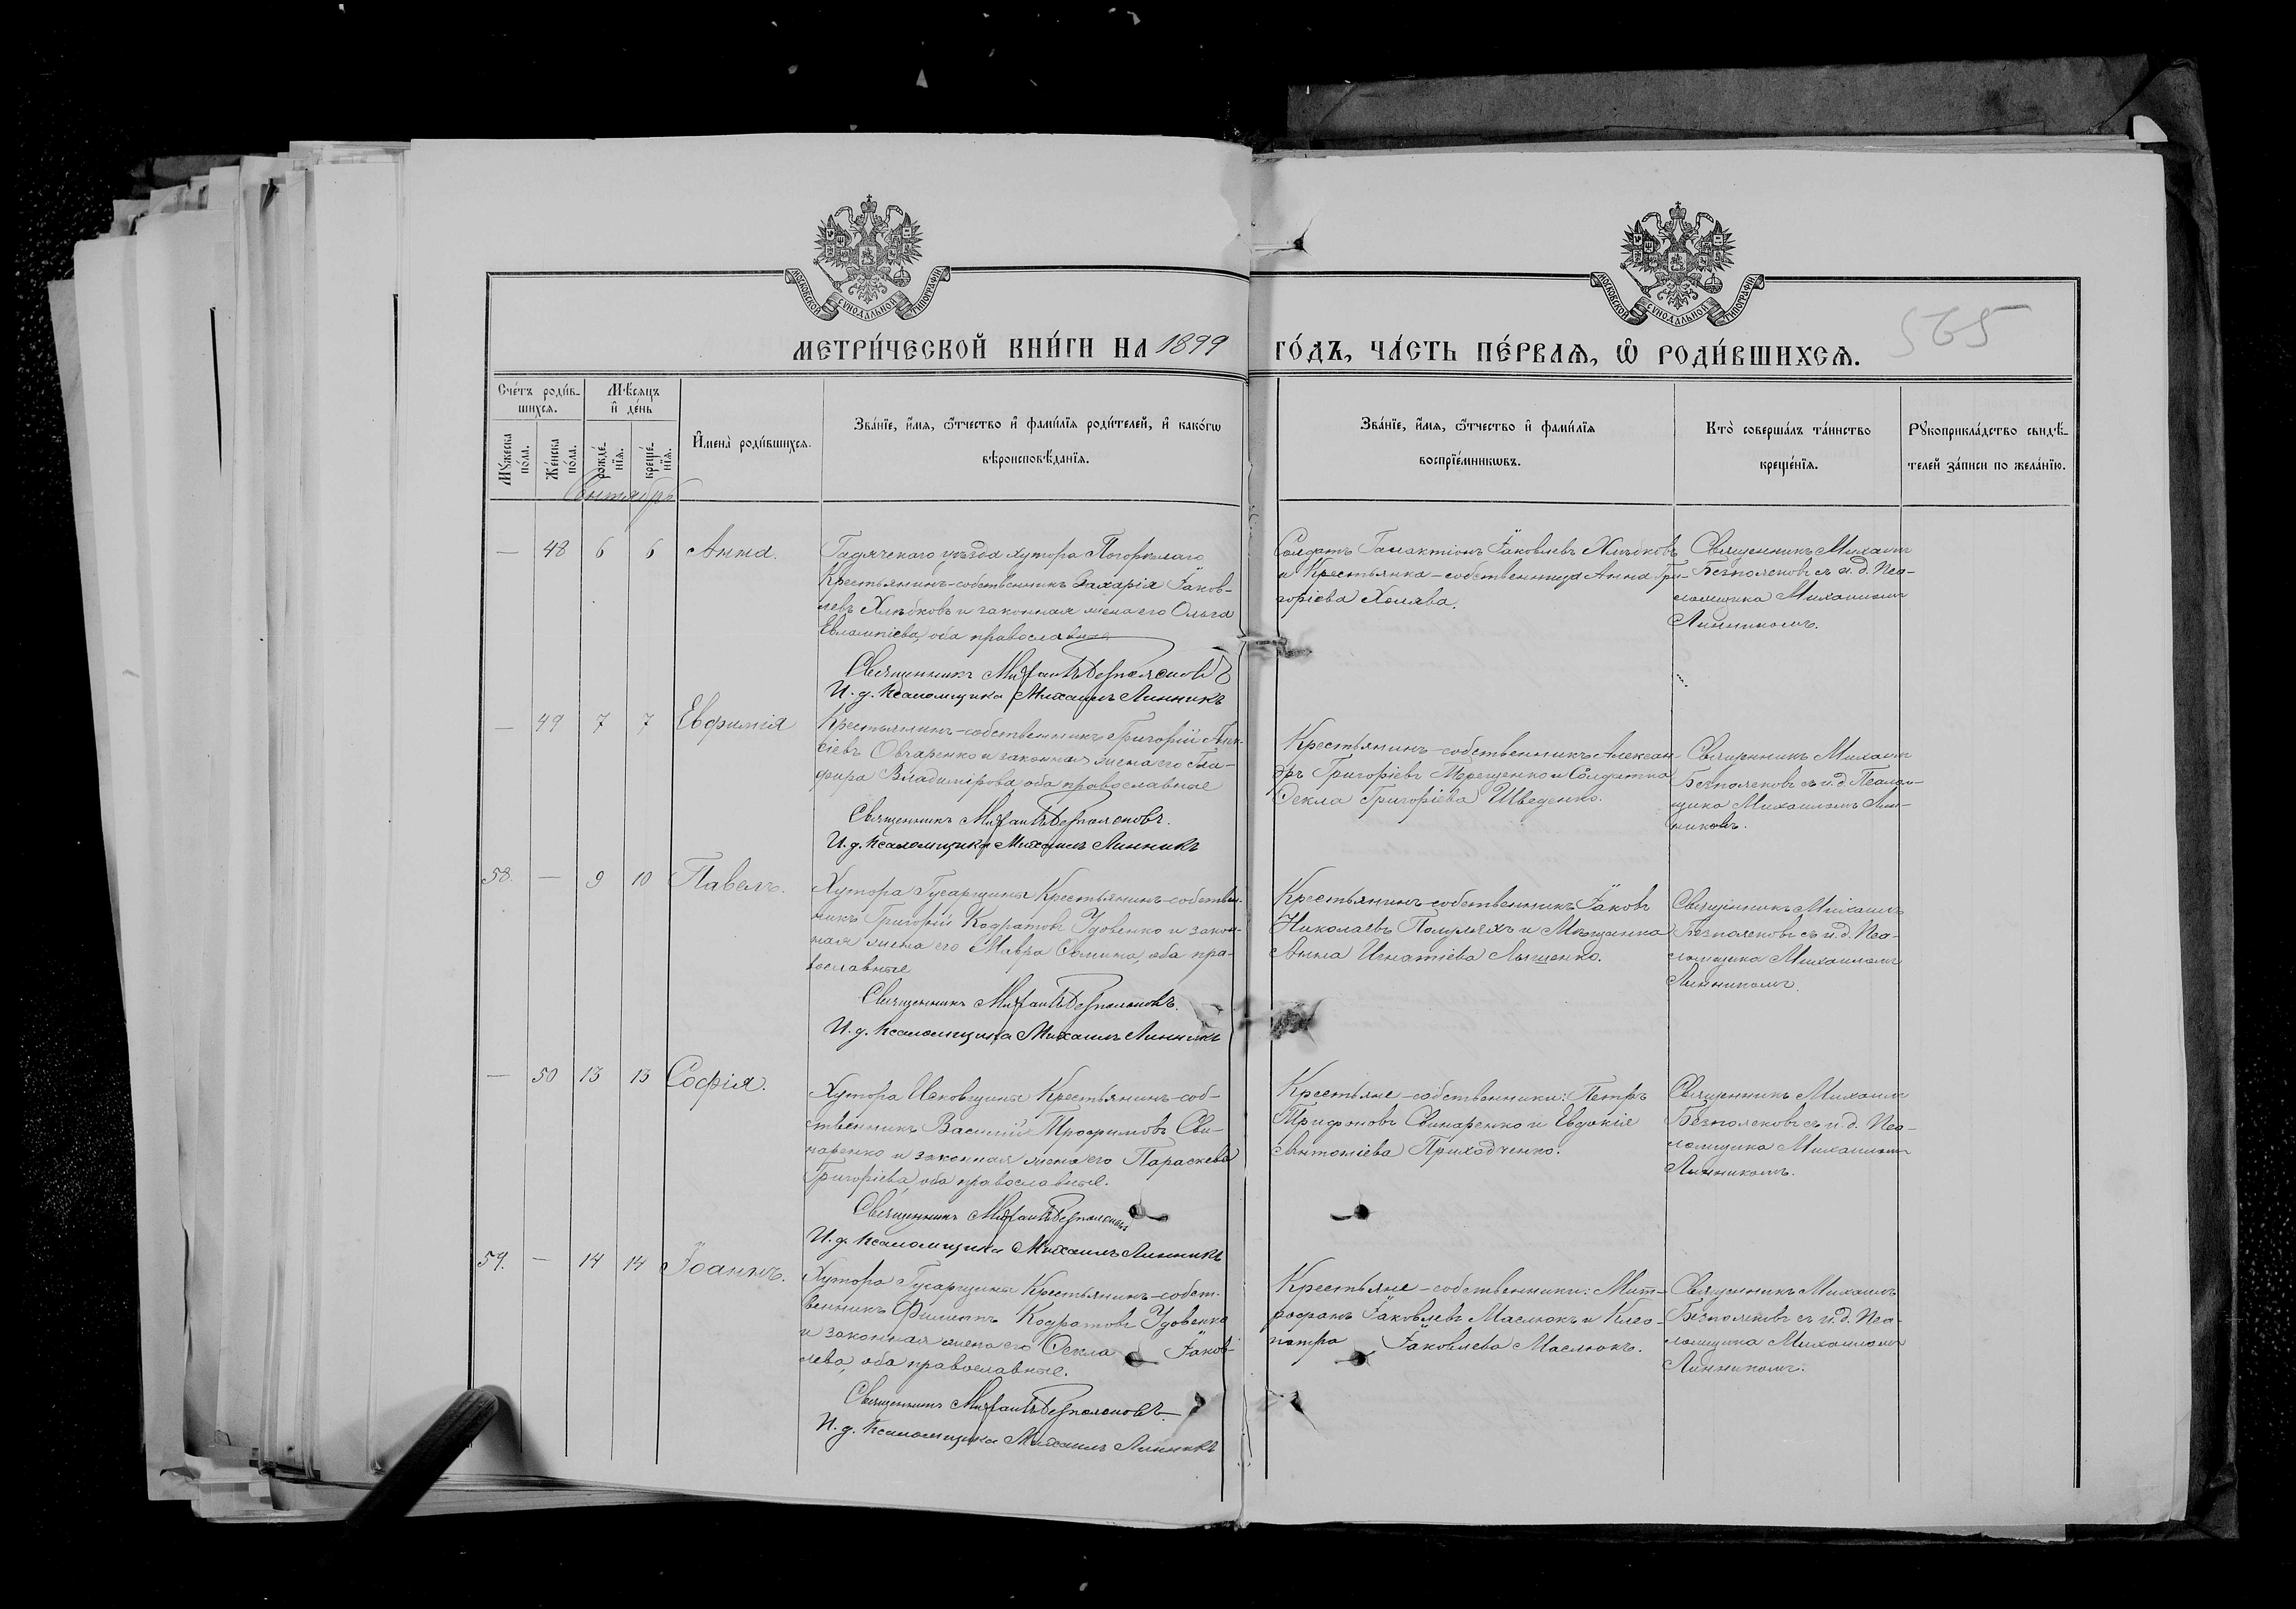 МОСКОВСКОЙ СУНОДАЛЬНОЙ ТИПОГРАФІИ
МОСКОВСКОЙ СУНОДАЛЬНОЙ ТИПОГРАФІИ
565
МЕТРИ́ЧЕСКОЙ КНИ́ГИ НА 1899 ГО́ДЪ, ЧА́СТЬ ПЕ́РВАѦ, Ѡ҆ РОДИ́ВШИХСѦ.
Сче́тъ роди́в-
шихсѧ.
Мѣ́сѧцъ
и҆ де́нь
Мꙋ́жеска
по́ла.
Же́нска
по́ла.
рожде́-
нїѧ.
креще́-
нїѧ.
И҆мена̀ роди́вшихсѧ.
Зва́нїе, и҆́мѧ, ѻ҆́тчество и҆ фами́лїѧ роди́телей, и҆ како́гѡ
вѣроисповѣ́данїѧ.
Зва́нїе, и҆́мѧ, ѻ҆́тчество и҆ фами́лїѧ
воспрїе́мникѡвъ.
Кто̀ соверша́лъ та́инство
креще́нїѧ.
Рꙋкоприкла́дство свидѣ́-
телей за́писи по жела́нїю.
Сентябрь
— 48 6 6 Анна.
Гадячскаго уѣзда хутора Погорѣлаго
Крестьянинъ-собственникъ Захарія Іаков-
левъ Хлѣбковъ и законная жена его Ольга
Евлампіева, оба православные
Священникъ Михаилъ Безпоясковъ
И. д. псаломщика Михаилъ Линникъ
Солдатъ Галактіонъ Іаковлевъ Хлѣбковъ
и Крестьянка-собственница Анна Гри-
горіева Халява.
Священникъ Михаилъ
Безпоясковъ съ и. д. Пса-
ломщика Михаиломъ
Линникомъ.
— 49 7 7 Евфимія
Крестьянинъ-собственникъ Григорій Алек-
сіевъ Овчаренко и законная жена его Гла-
фира Владимірова, оба православные
Священникъ Михаилъ Безпоясковъ.
И. д. псаломщика Михаилъ Линникъ
Крестьянинъ-собственникъ Алексан-
дръ Григоріевъ Терещенко и Солдатка
Ѳекла Григоріева Шведенко.
Священникъ Михаилъ
Безпоясковъ съ и. д. Псалом-
щика Михаиломъ Лин-
никомъ.
58. — 9 10 Павелъ.
Хутора Гусарщины Крестьянинъ-собствен-
никъ Григорій Кодратовъ Удовенко и закон-
ная жена его Мавра Ѳомина, оба пра-
вославные
Священникъ Михаилъ Безпоясковъ.
И. д. псаломщика Михаилъ Линникъ
Крестьянинъ-собственникъ Іаковъ
Николаевъ и Мѣщанка
Анна Игнатіева Лященко.
Священникъ Михаилъ
Безпоясковъ съ и. д. Пса-
ломщика Михаиломъ
Линникомъ.
— 50 13 13 Софія.
Хутора Исковщины Крестьянинъ-соб-
ственникъ Василій Трофимовъ Сви-
наренко и законная жена его Параскева
Григоріева, оба православные.
Священникъ Михаилъ Безпоясковъ
И. д. псаломщика Михаилъ Линникъ
Крестьяне-собственники: Петръ
Трифоновъ Свинаренко и Евдокія
Антоніева Приходченко.
Священникъ Михаилъ
Безпоясковъ съ и. д. Пса-
ломщика Михаиломъ
Линникомъ.
59. — 14 14 Іоаннъ.
Хутора Гусарщины Крестьянинъ-собст-
венникъ Филиппъ Кодратовъ Удовенко
и законная жена его Ѳекла Іаков-
лева, оба православные.
Священникъ Михаилъ Безпоясковъ
И. д. псаломщика Михаилъ Линникъ
Крестьяне-собственники: Мит-
рофанъ Іаковлевъ Маслюкъ и Клео-
патра Іаковлева Маслюкъ.
Священникъ Михаилъ
Безпоясковъ съ и. д. Пса-
ломщика Михаиломъ
Линникомъ.